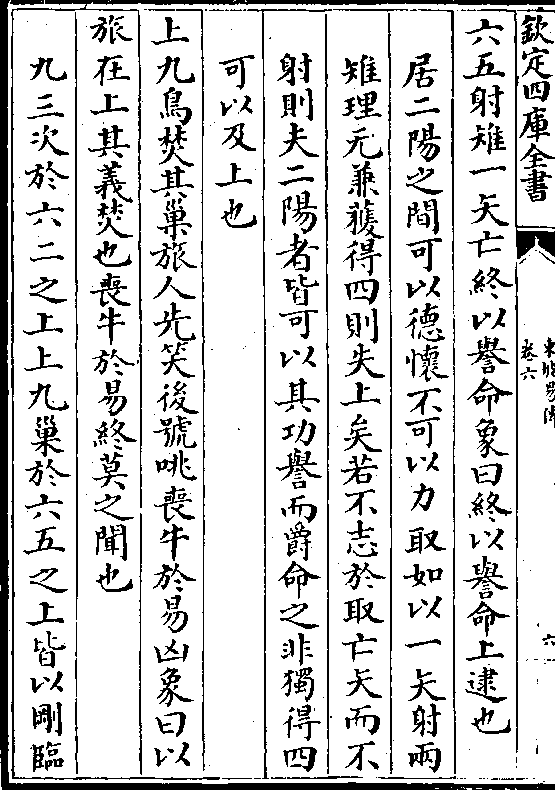 欽定四庫全書
東坡易傳
卷六
六
六五射雉一矢亡終以譽命象曰終以譽命上逮也
居二陽之間可以德懷不可以力取如以一矢射兩
雉理无兼獲得四則失上矣若不志於取亡矢而不
射則夫二陽者皆可以其功譽而爵命之非獨得四
可以及上也
上九鳥焚其巢旅人先笑後號咷喪牛於易凶象曰以
旅在上其義焚也喪牛於易終莫之聞也
九三次於六二之上上九巢於六五之上皆以剛臨